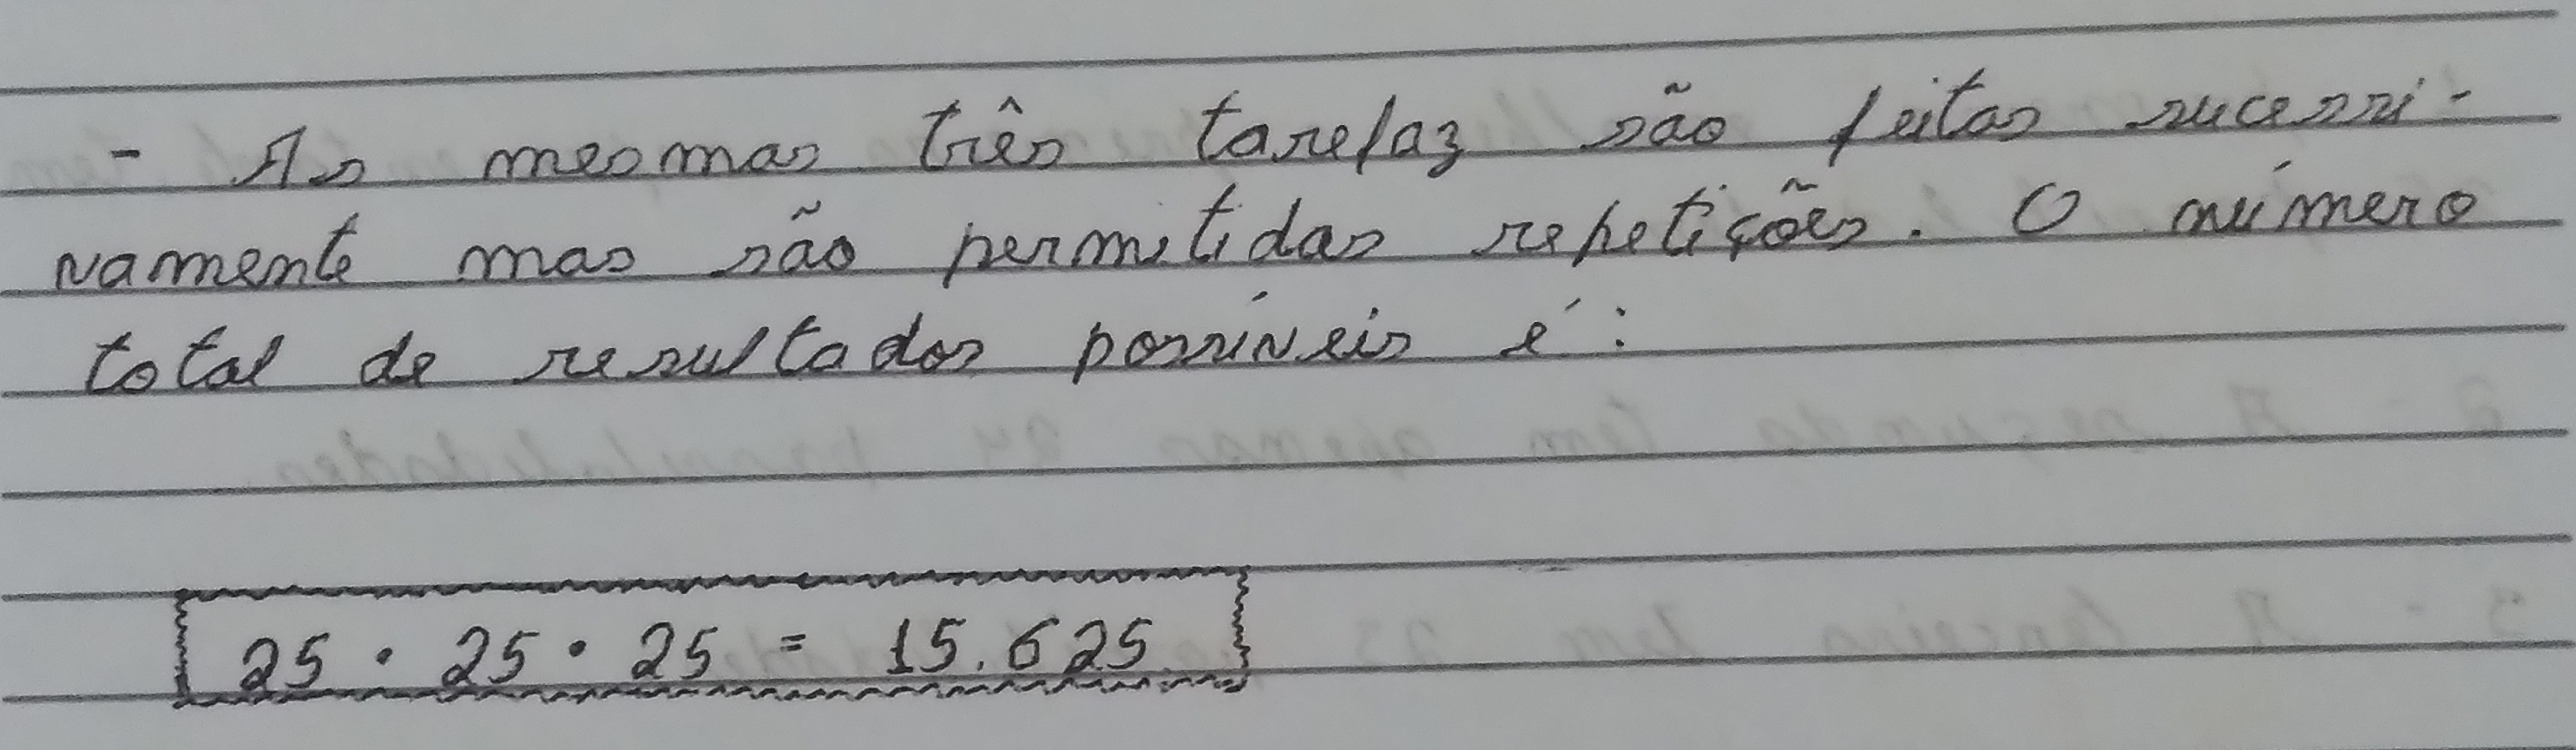 - As mesmas três tarefaz são feitas sucessi-
vamente mas são permitidas repetições. O número
total de resultados possíveis é:
25 · 25 · 25 = 15.625